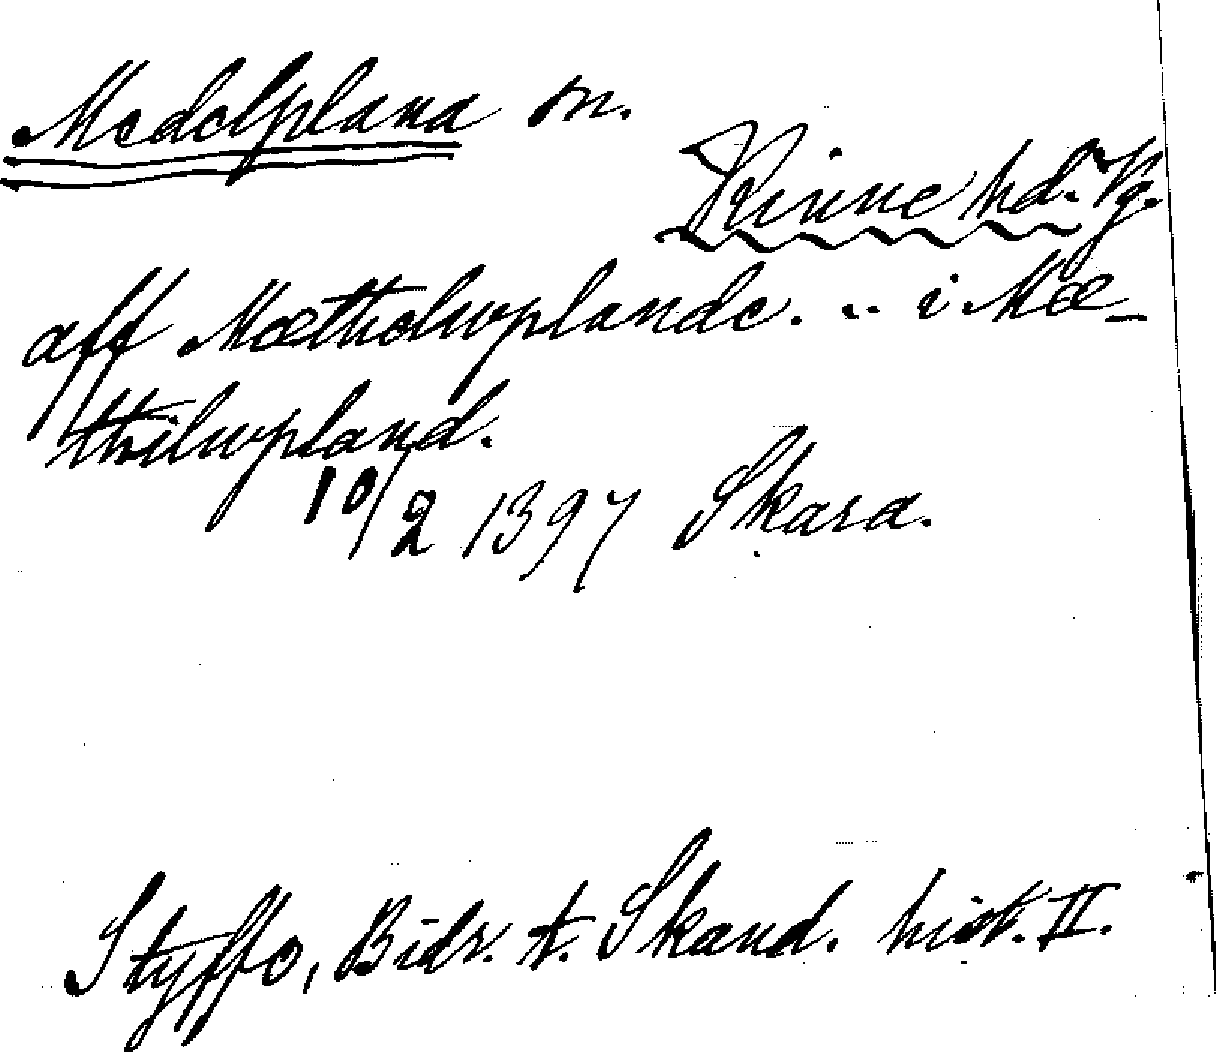 Medelplana sn.
Kinne hd. Vg.
aff Mætholwplande. .. i Mæ-
thilwpland.
10/2 1397 Skara.
Styffe, Bidr. t. Skand. hist. II.